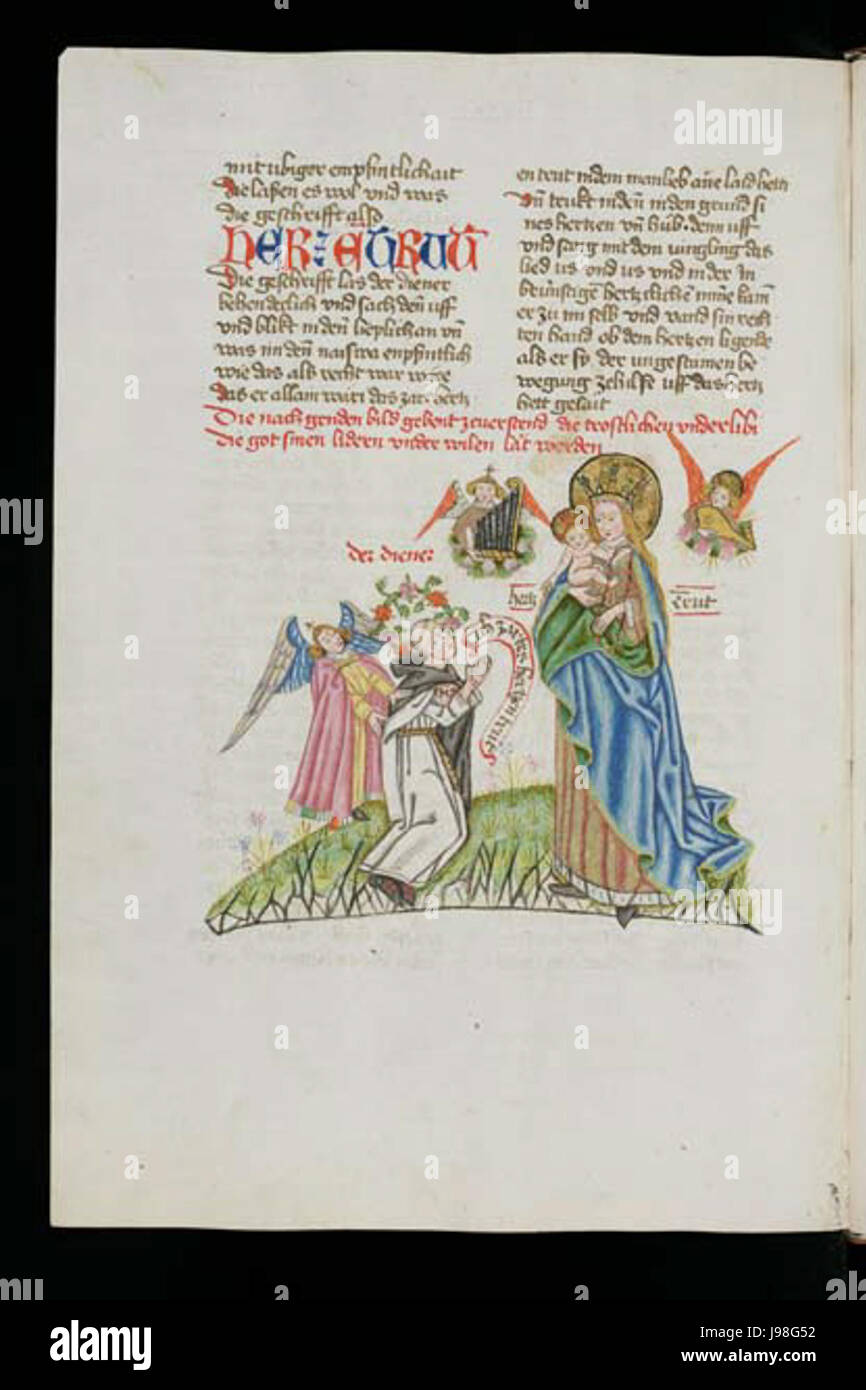 mit ubiger empfintlichait
die lasen es wol vnd was
die geschrifft also
HERZ TRUT
Die geschrifft las der diener
behendeclich vnd sach den uff
vnd blikt in den lieplich an vn
was im den
wie das als recht war wäre
das er allain wäri das zart hertz
en trut in dem man lieb ane laid hett
vn trukt in den in den grund si
nes hertzen vn hůb denn uff
vnd sang mit dem iungling das
lied us vnd us vnd in der in
brünstigen hertzlichen mine kam
er zu im selb vnd vand sin rech
ten hand ob dem hertzen ligende
als er sy der ungestumen be
wegung ze hilff uff das hertz
hett gelait
Die nach genden bild gebent ze verstend die trostlichen underlibi
die got sinen lidern under wilen lat werden
der diener
hertz
trut
hertzen trut
alamy
Image ID: J98G52
www.alamy.com